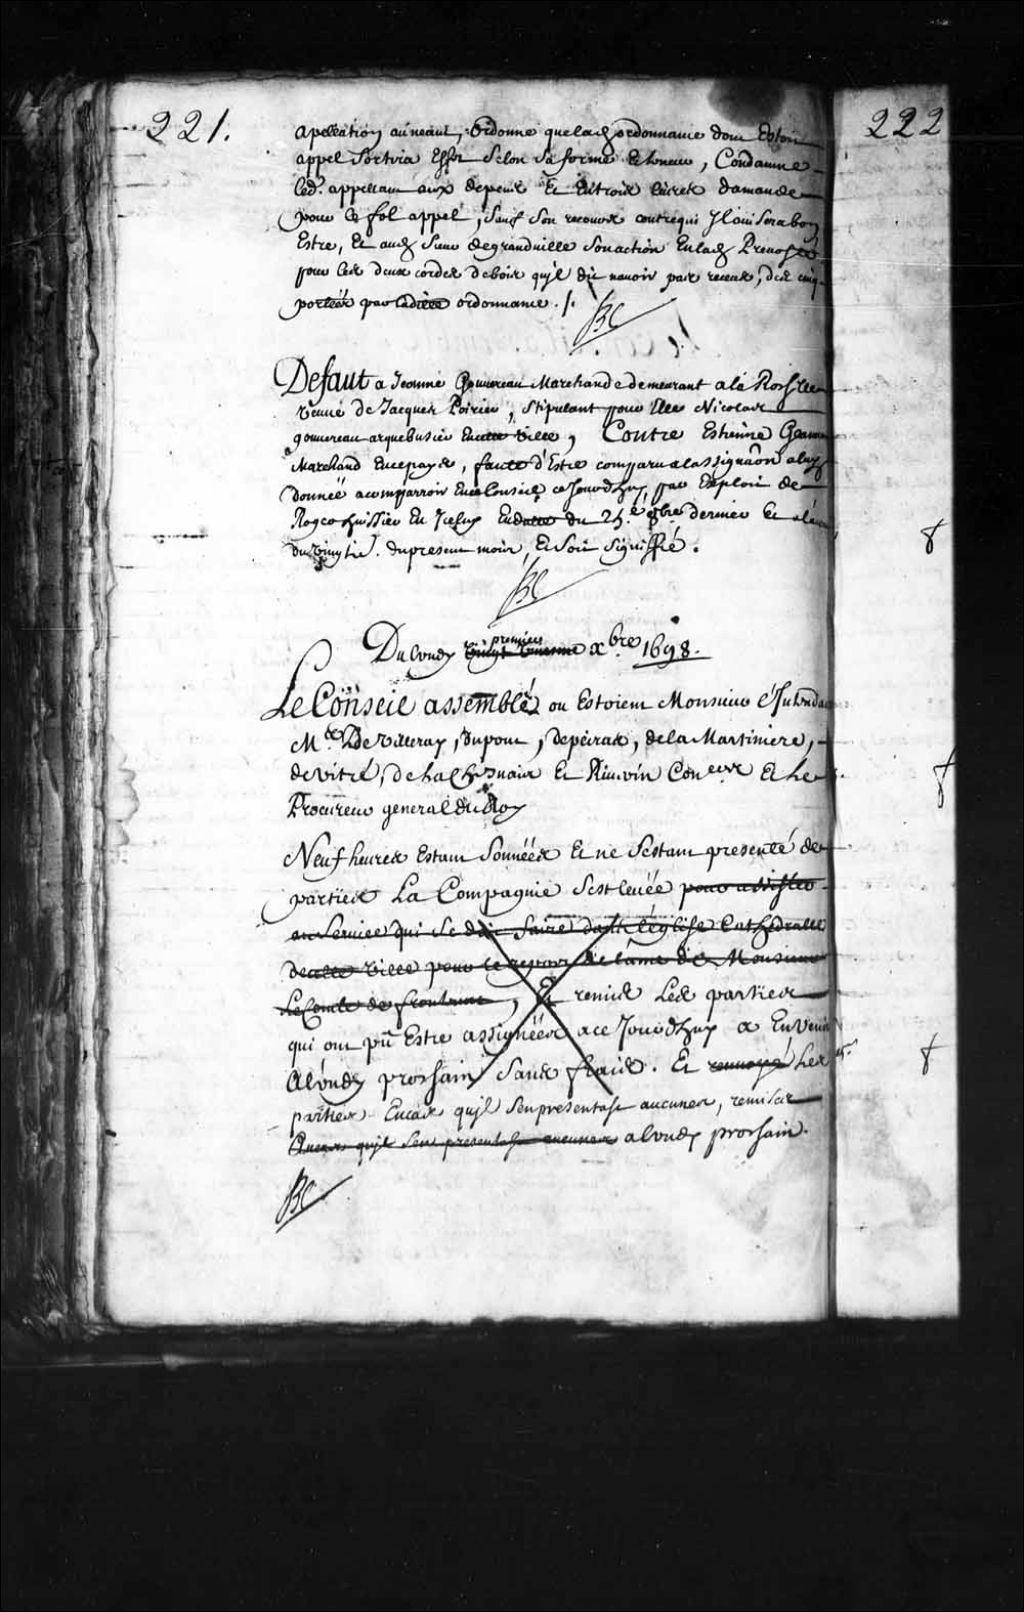 221.
222
apellation au neant, Ordonne que lad ordonnance dont Estoit
appel Sortira Effet Selon Sa forme & teneur, Condamne
led. appellant aux depens Et En trois livres damande
pour le fol appel, Sauf Son recours contre qui Il avisera bon
Estre, Et aud Sieur de grandville Son action En lad Prevosté
pour les deux cordes de bois qu'il dit navoir pas receus, des cinq
portées par ladite ordonnance ./.
Defaut a Jeanne Gouvereau Marchande demeurant a la Rochelle
veuve de Jacques Poirier, Stipulant pour Elle Nicolas
gouvereau arquebusier En cette Ville, Contre Estienne
Marchand En ce pays, faute d'Estre comparu a lassignaon a luy
donnée a comparroir En ce Conseil ce Jourdhuy, par Exploit de
Roger huissier En Iceluy En datte du dernier Et
du vingtie. du present mois, Et Soit Signiffié.
Du Lundy premier xbre 1698.
Le Conseil assemblé ou Estoient Monsieur L'Intendant
Mes. De Villeray, Dupont, Depeiras, de la Martiniere,
de vitré, de la Chesnaie Et Riverin Coners Et Le
Procureur general du Roy
Neuf heures Estant Sonnées Et ne Sestant presenté de
parties La Compagnie Sest levée pour assister
au Service qui Se doit faire dans l'église Cathedralle
de cette Ville pour le repos de l'ame de Monsieur
Le Comte de frontenac, Et remis Les parties
qui ont pû Estre assignées a ce Jourdhuy a En Venir
a Lundy prochain Sans fraix. Et renvoyé Les
parties En cas qu'il Sen presentast aucunes, remises
En cas qu'il Sen presentast aucunes a Lundy prochain.